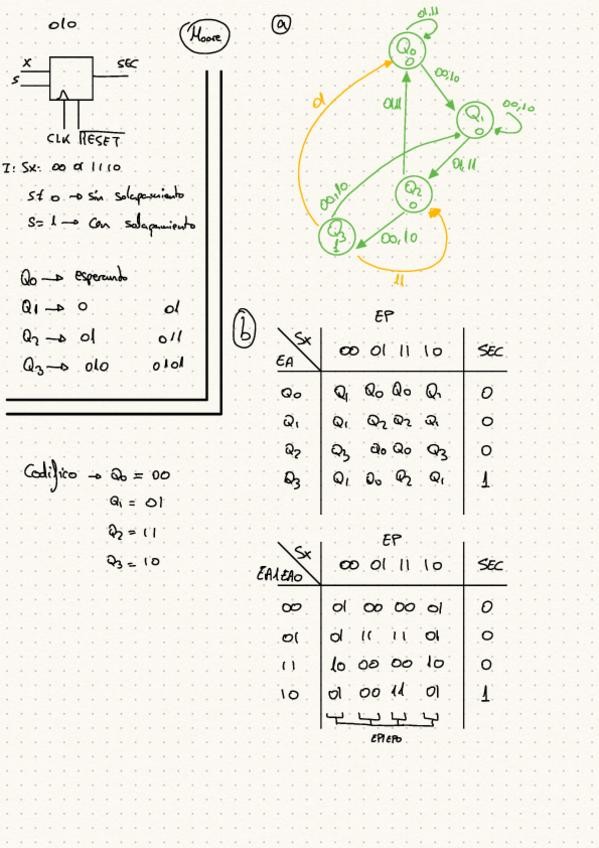 010
Moore
X
S
SEC
CLK RESET
I: Sx: 00 01 11 10
S≠ 0 → Sin solapamiento
S= 1 → Con solapamiento
Q0 → esperando
Q1 → 0 01
Q2 → 01 011
Q3 → 010 0101
a
Q0
0
01,11
00,10
Q1
0
00,10
01,11
01,11
Q2
0
00,10
00,10
Q3
1
01
11
b
EP
Sx
EA
00 01 11 10 SEC
Q0 Q1 Q0 Q0 Q1 0
Q1 Q1 Q2 Q2 Q1 0
Q2 Q3 Q0 Q0 Q3 0
Q3 Q1 Q0 Q2 Q1 1
Codifico → Q0 = 00
Q1 = 01
Q2 = 11
Q3 = 10
EP
Sx
EA1EA0
00 01 11 10 SEC
00 01 00 00 01 0
01 01 11 11 01 0
11 10 00 00 10 0
10 01 00 11 01 1
EP1EP0